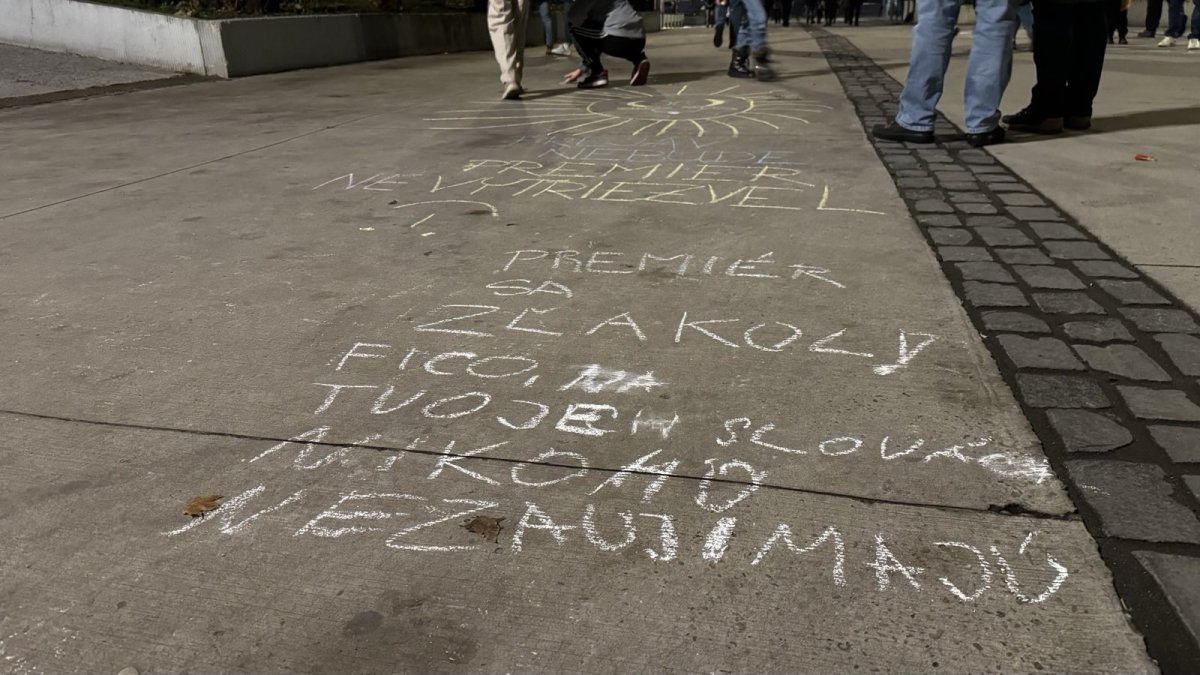 NEBUDE
PREMIER
NE VYTRIEZVEL
PREMIÉR
SA
ZĽAKOL
FICO, NA
TVOJEH SLOVÁ
NIKOHO
NEZAUJIMAJÚ